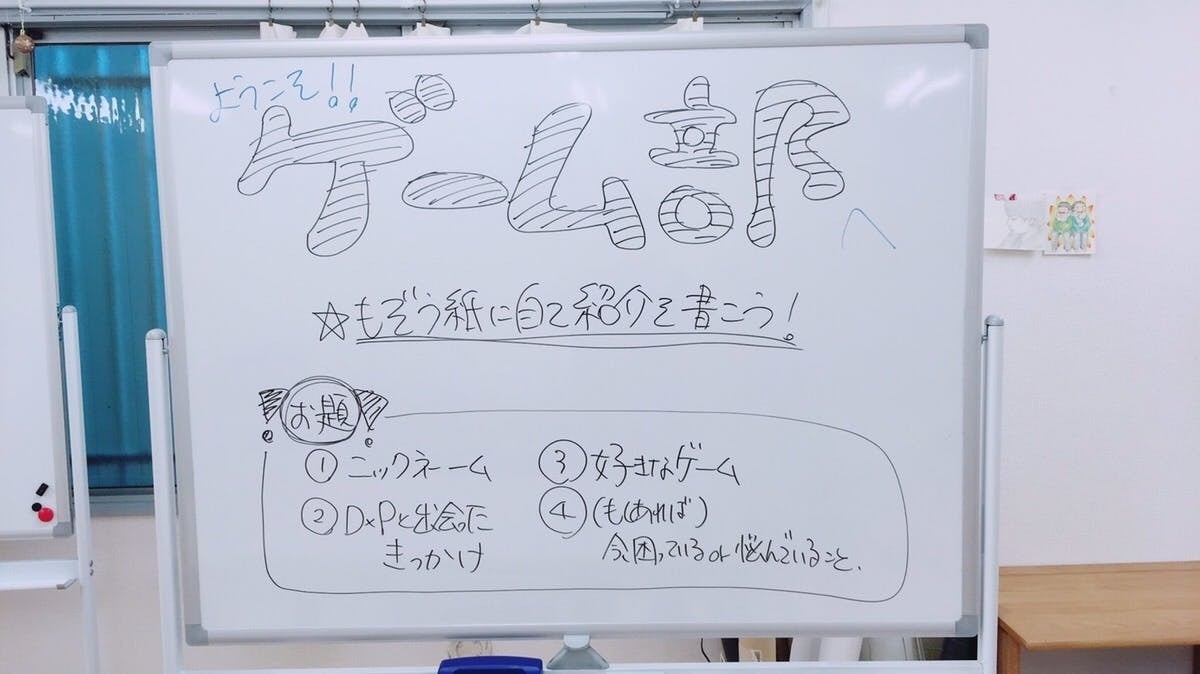 ようこそ!!
ゲーム部
へ
☆もぞう紙に自己紹介を書こう!
お題
① ニックネーム
② D×Pと出会った
きっかけ
③ 好きなゲーム
④ (もしあれば)
今困っているor悩んでいること.